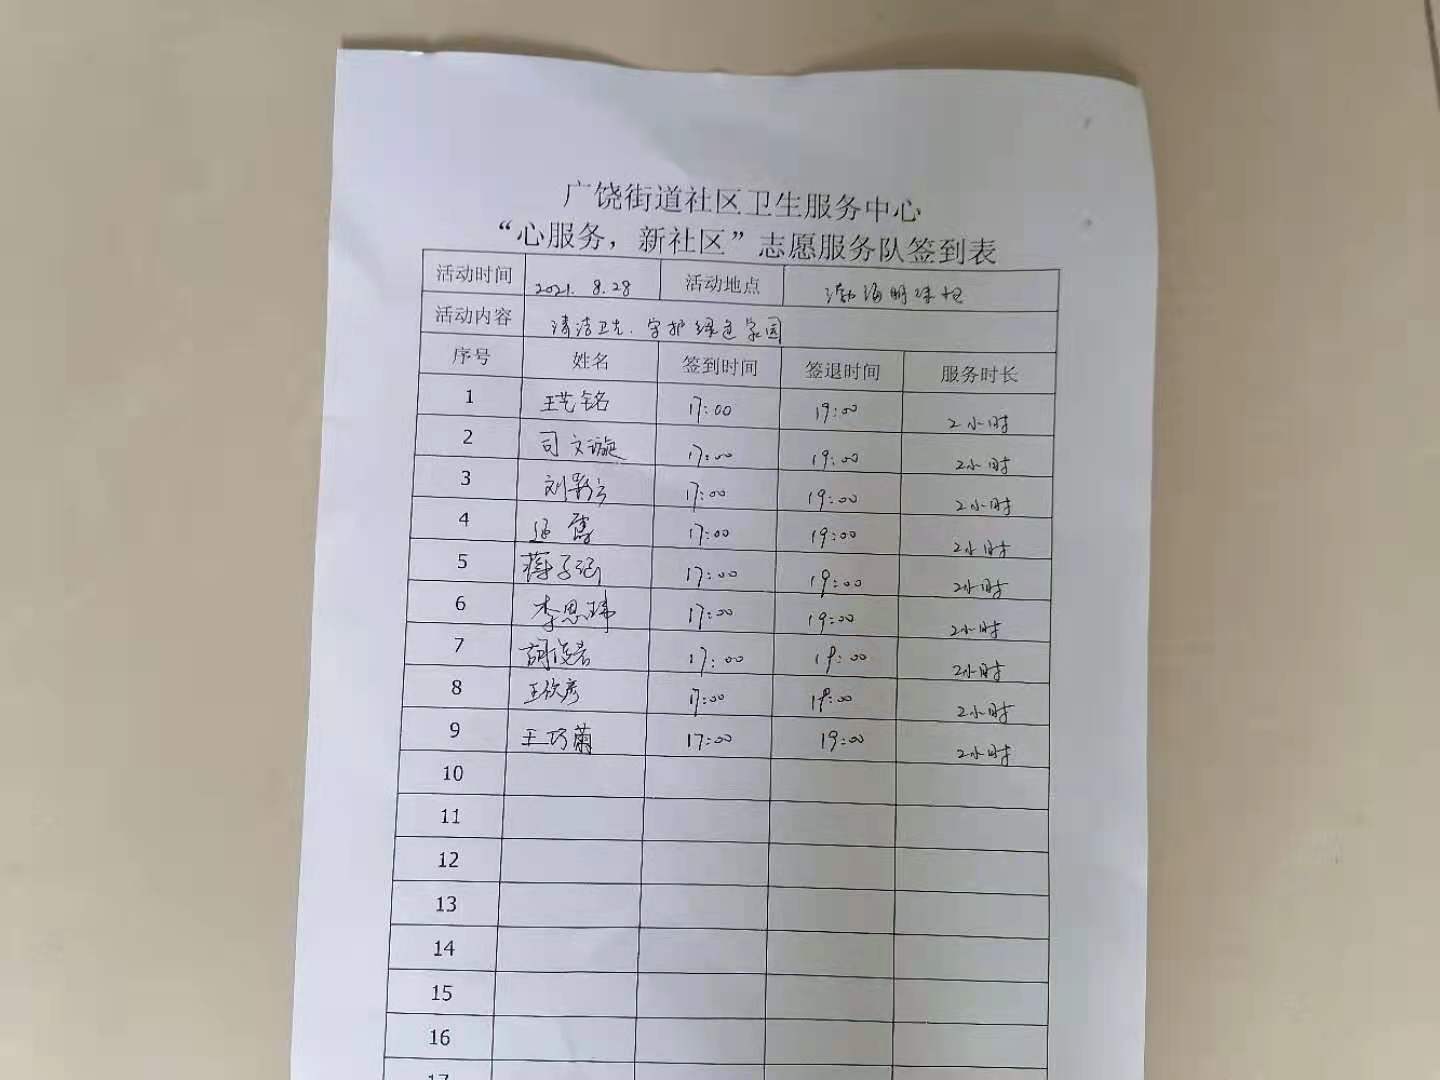 广饶街道社区卫生服务中心
“心服务，新社区”志愿服务队签到表
活动时间 2021. 8.28 活动地点 渤海明珠
活动内容 清洁卫生、守护绿色家园
序号 姓名 签到时间 签退时间 服务时长
1 王艺铭 17:00 19:00 2小时
2 司文璇 17:00 19:00 2小时
3 刘 17:00 19:00 2小时
4 17:00 19:00 2小时
5 蒋子涵 17:00 19:00 2小时
6 李思玮 17:00 19:00 2小时
7 胡俊岩 17:00 19:00 2小时
8 王欣彦 17:00 19:00 2小时
9 王巧菊 17:00 19:00 2小时
10
11
12
13
14
15
16
17